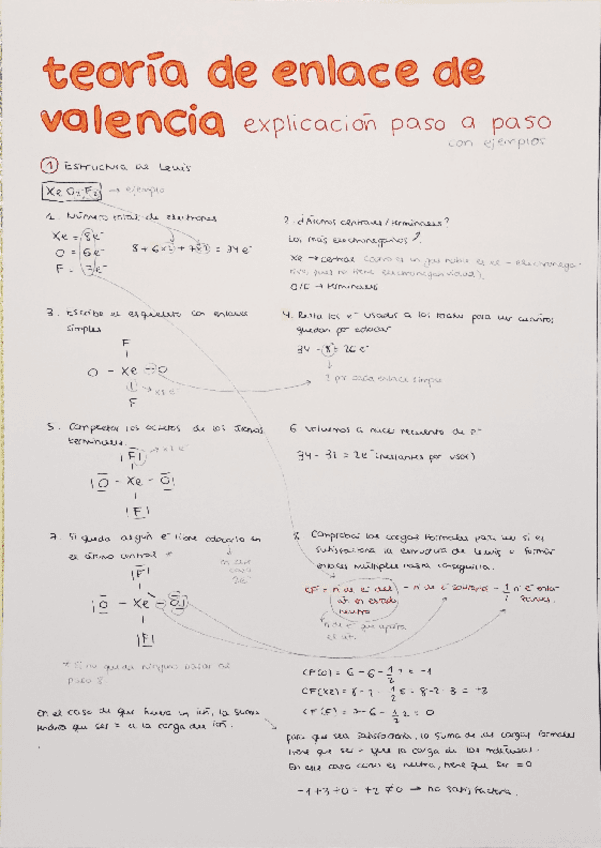 teoría de enlace de
valencia explicación paso a paso
con ejemplos
① Estructura de Lewis
XeO₂F₂ → ejemplo
1. Número total de electrones
Xe = 8e⁻
O = 6e⁻
F = 7e⁻
8 + 6x2 + 7x2 = 34e⁻
2. ¿Átomos centrales/terminales?
Los más electronegativos
Xe → central
O/F → terminales
3. Escribe el esqueleto con enlaces
simples
F
O - Xe - O
F
4. Resta los e⁻ usados a los totales para ver cuántos
quedan por colocar
34 - 8 = 26e⁻
2 por cada enlace simple
5. Completar los octetos de los átomos
terminales.
|F|
|O - Xe - O|
|F|
6 Volvemos a hacer recuento de e⁻
34 - 32 = 2e⁻ (restantes por usar)
7. Si queda algún e⁻ tiene colocarlo en
el átomo central *
en este
caso
2e⁻
|F|
|O - Xe - O|
|F|
* Si no queda ninguno pasar al
paso 8
8. Comprobar las cargas formales para ver si es
satisfactoria la estructura de Lewis o formar
enlaces múltiples hasta conseguirla.
CF = nº de e⁻ del - nº de e⁻ solitarios - 1/2 nº e⁻ enla-
át. en estado
neutro
nº de e⁻ que aporta
el át.
CF(O) = 6 - 6 - 1/2 2 = -1
CF(Xe) = 8 - 2 - 1/2 6 = 8 - 2 - 3 = +3
CF(F) = 7 - 6 - 1/2 2 = 0
En el caso de que fuera un ión, la suma
tendría que ser = a la carga del ión.
para que sea satisfactoria, la suma de las cargas formales
tiene que ser = que la carga de la molécula.
En este caso como es neutra, tiene que ser = 0
-1 + 3 + 0 = +2 ≠ 0 → no satisfactoria.